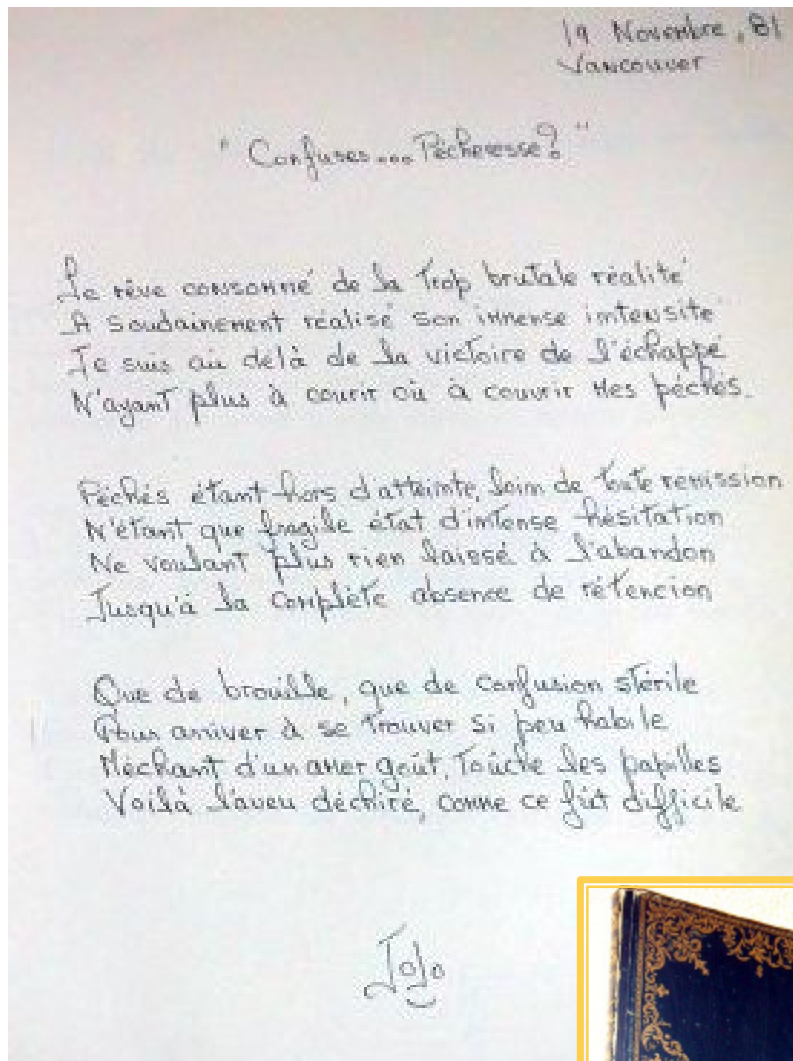 19 Novembre, 81
Vancouver
"Confuses... Pécheresse?"
Le rêve consommé de la trop brutale réalité
A soudainement réalisé son immense intensité
Je suis au delà de la victoire de l'échappé
N'ayant plus à courir où à couvrir mes péchés.
Péchés étant hors d'atteinte, loin de toute remission
N'étant que fragile état d'intense hésitation
Ne voulant plus rien laissé à l'abandon
Jusqu'à la complète absence de rétencion
Que de brouille, que de confusion stérile
Pour arriver à se trouver si peu habile
Méchant d'un amer goût, touche les papilles
Voilà l'aveu déchiré, comme ce fût difficile
JoJo